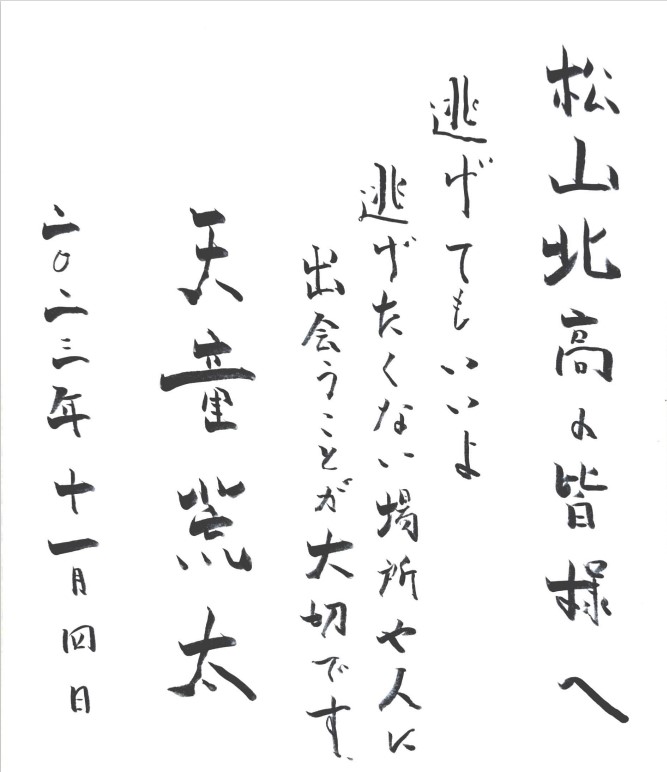 松山北高の皆様へ
逃げてもいいよ
逃げたくない場所や人に
出会うことが大切です
天童荒太
二〇二三年十一月四日